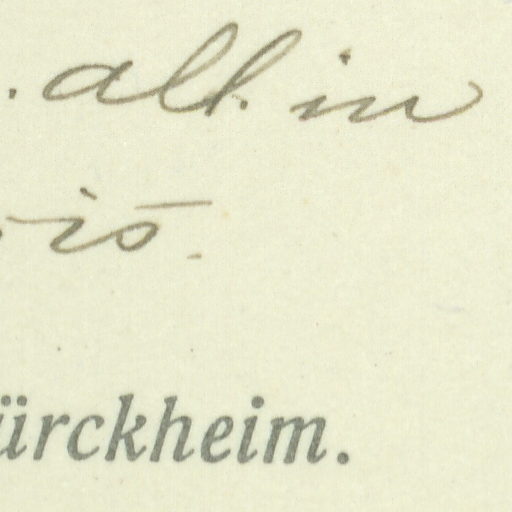 . alt. in
ürckheim.